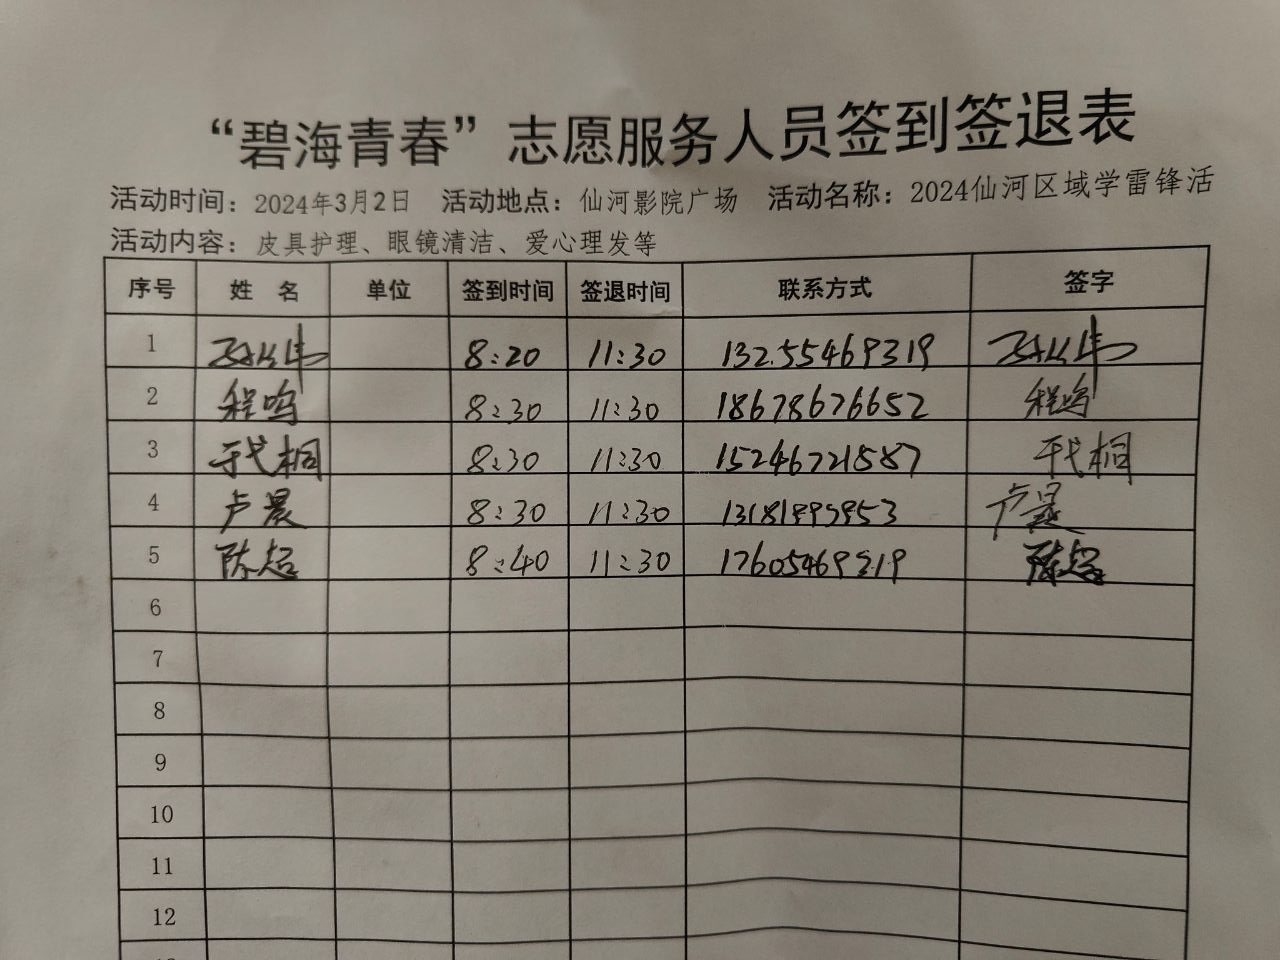 “碧海青春”志愿服务人员签到签退表
活动时间：2024年3月2日 活动地点：仙河影院广场 活动名称：2024仙河区域学雷锋活
活动内容：皮具护理、眼镜清洁、爱心理发等
序号 姓 名 单位 签到时间 签退时间 联系方式 签字
1 8:20 11:30 13255469319
2 程鸣 8:30 11:30 18678676652 程鸣
3 于代桐 8:30 11:30 15246721587 于代桐
4 卢晨 8:30 11:30 卢晨
5 陈超 8:40 11:30 陈超
6
7
8
9
10
11
12